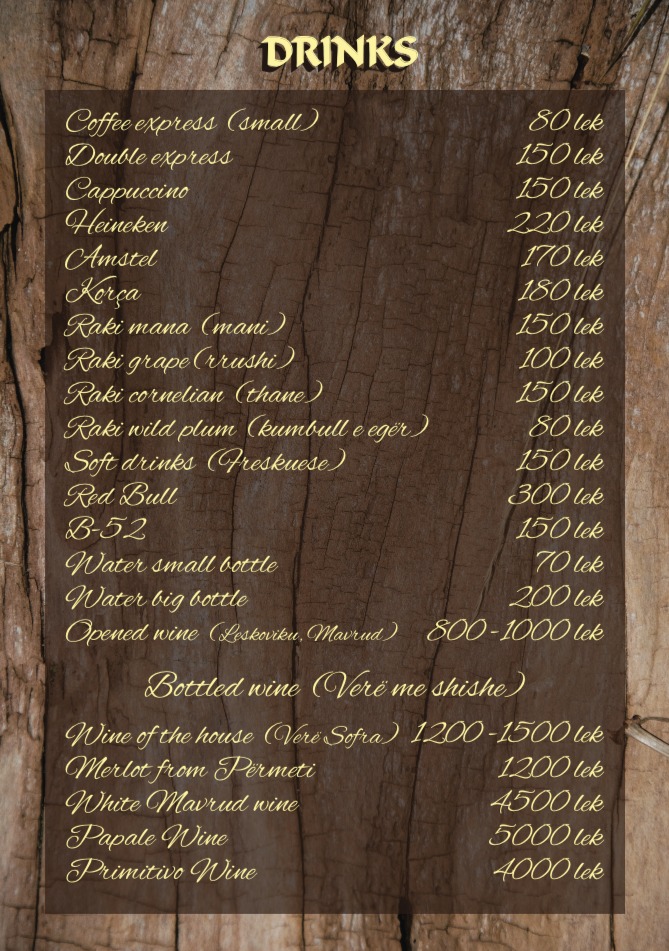 DRINKS
Coffee express (small) 80 lek
Double express 150 lek
Cappuccino 150 lek
Heineken 220 lek
Amstel 170 lek
Korça 180 lek
Raki mana (mani) 150 lek
Raki grape (rrushi) 100 lek
Raki cornelian (thane) 150 lek
Raki wild plum (kumbull e egër) 80 lek
Soft drinks (Freskuese) 150 lek
Red Bull 300 lek
B-52 150 lek
Water small bottle 70 lek
Water big bottle 200 lek
Opened wine (Leskoviku, Mavrud) 800-1000 lek
Bottled wine (Verë me shishe)
Wine of the house (Verë Sofra) 1200-1500 lek
Merlot from Përmeti 1200 lek
White Mavrud wine 4500 lek
Papale Wine 5000 lek
Primitivo Wine 4000 lek